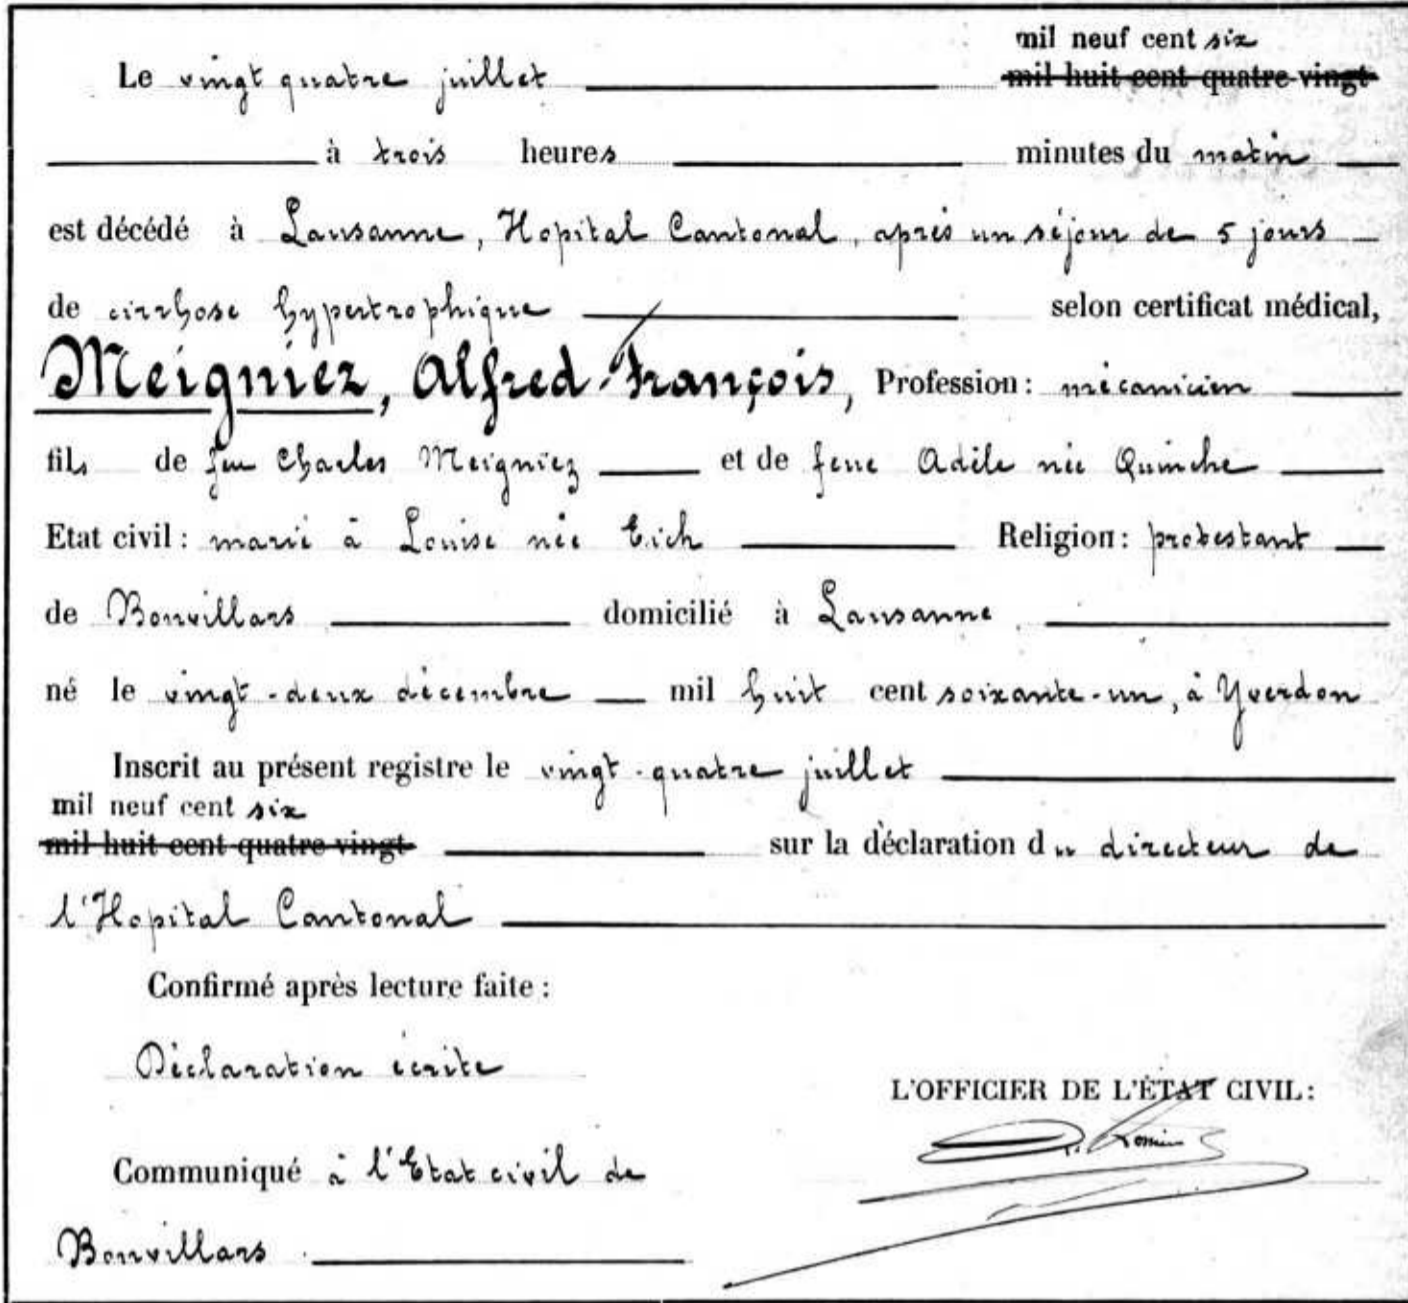 mil neuf cent six
Le vingt quatre juillet mil huit cent quatre-vingt
à trois heures minutes du matin
est décédé à Lausanne, Hopital Cantonal, après un séjour de 5 jours
de cirrhose hypertrophique selon certificat médical,
Meigniez, Alfred-François, Profession: mécanicien
fils de feu Charles Meigniez et de feue Adèle née Quinche
Etat civil: marié à Louise née Eich Religion: protestant
de Bonvillars domicilié à Lausanne
né le vingt-deux décembre mil huit cent soixante-un, à Yverdon
Inscrit au présent registre le vingt-quatre juillet
mil neuf cent six
mil huit cent quatre vingt sur la déclaration du directeur de
l'Hopital Cantonal
Confirmé après lecture faite:
Déclaration écrite
L'OFFICIER DE L'ÉTAT CIVIL:
Communiqué à l'Etat civil de
Bonvillars